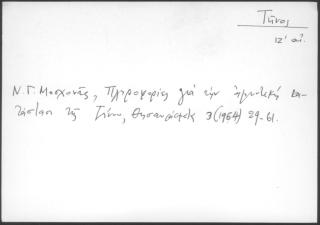 Τῆνος
ΙΖ' αἰ.
Ν. Γ. Μοσχονᾶς, Πληροφορίες γιά τήν ἀμυντική κα-
τάσταση τῆς Τήνου, Θησαυρίσματα 3 (1964) 29-61.